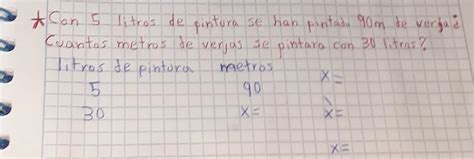 * Con 5 litros de pintura se han pintado 90m de verja ¿
Cuantos metros de verjas se pintara con 30 litros?
litros de pintura metros x=
5 90
30 x= x=
x=